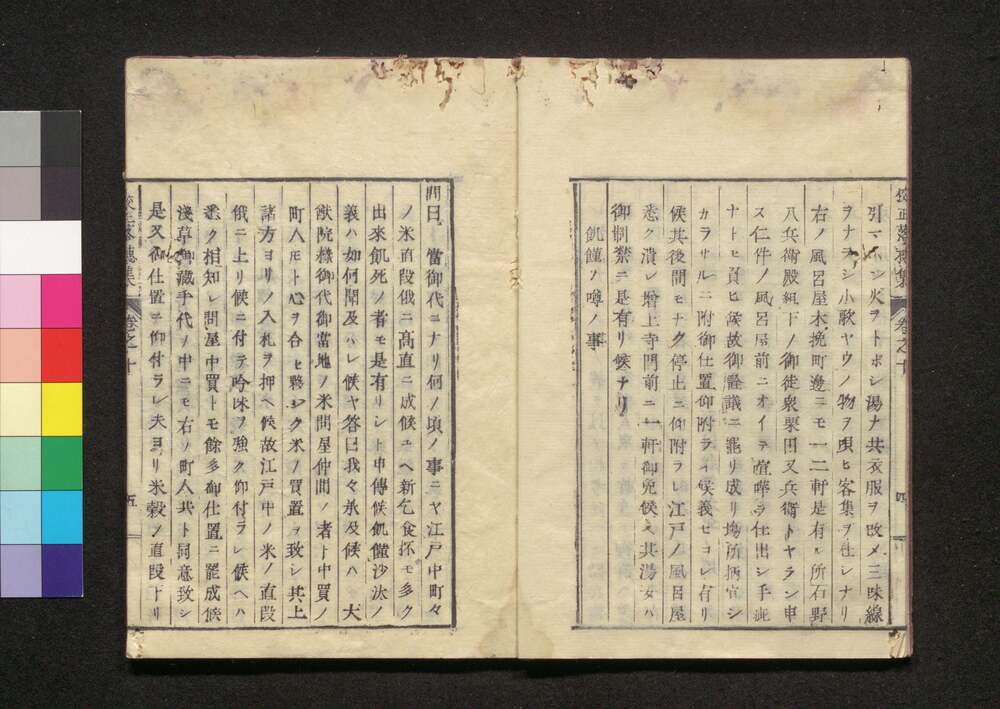 校正落穂集 巻之十 四
引マハシ火ヲトボシ湯ナ共衣服ヲ改メ三味線
ヲナラシ小歌ヤウノ物ヲ唄ヒ客集ヲ仕レナリ
右ノ風呂屋木挽町邊ニモ一二軒是有ル所石野
八兵衛殿組下ノ御徒衆栗田又兵衛トヤラン申
ス仁件ノ風呂屋前ニオイテ喧嘩ヲ仕出シ手疵
ナトモ負ヒ候故御詮議ニ罷リ成リ場所柄宜シ
カラサルニ附御仕置仰附ラレ候義モコレ有リ
候其後間モナク停止ニ仰附ラレ江戸ノ風呂屋
悉ク潰レ増上寺門前ニ一軒御免候ヘ共湯女ハ
御制禁ニ是有リ候ナリ
飢饉ノ噂ノ事
問曰ク當御代ニナリ何ノ頃ノ事ニヤ江戸中町々
ノ米直段俄ニ高直ニ成候ユヘ新乞食抔モ多ク
出來飢死ノ者モ是有リシト申傳候飢饉沙汰ノ
義ハ如何聞及ハレ候ヤ答曰我々承及候ハ大
猷院様御代御當地ノ米問屋仲間ノ者ト中買ノ
町人𪜈ト心ヲ合セ夥シク米ノ買置ヲ致シ其上
諸方ヨリノ入札ヲ押ヘ候故江戸中ノ米ノ直段
俄ニ上リ候ニ付テ吟味ヲ強ク仰付ラレ候ヘハ
悉ク相知レ問屋中買トモ餘多御仕置ニ罷成候
淺草御藏手代ノ中ニモ右ノ町人共ト同意致シ
是又御仕置ニ仰付ラレ夫ヨリ米穀ノ直段下リ
校正落穂集 巻之十 五